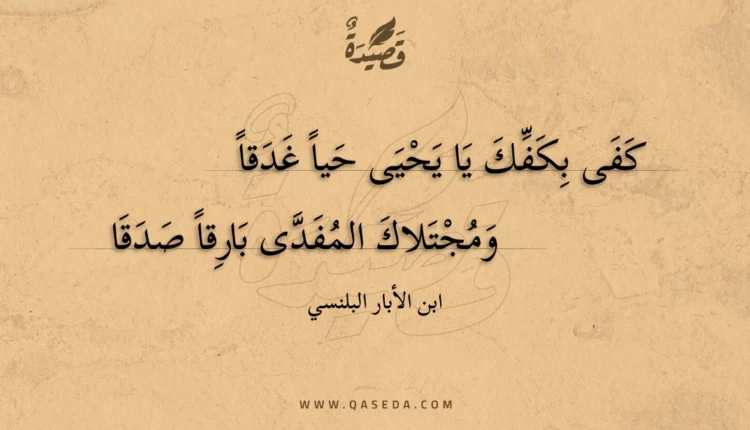 قَصِيدَةٌ
كَفَى بِكَفِّكَ يَا يَحْيَى حَياً غَدَقاً
وَمُجْتَلاكَ المُفَدَّى بَارِقاً صَدَقَا
ابن الأبار البلنسي
WWW.QASEDA.COM